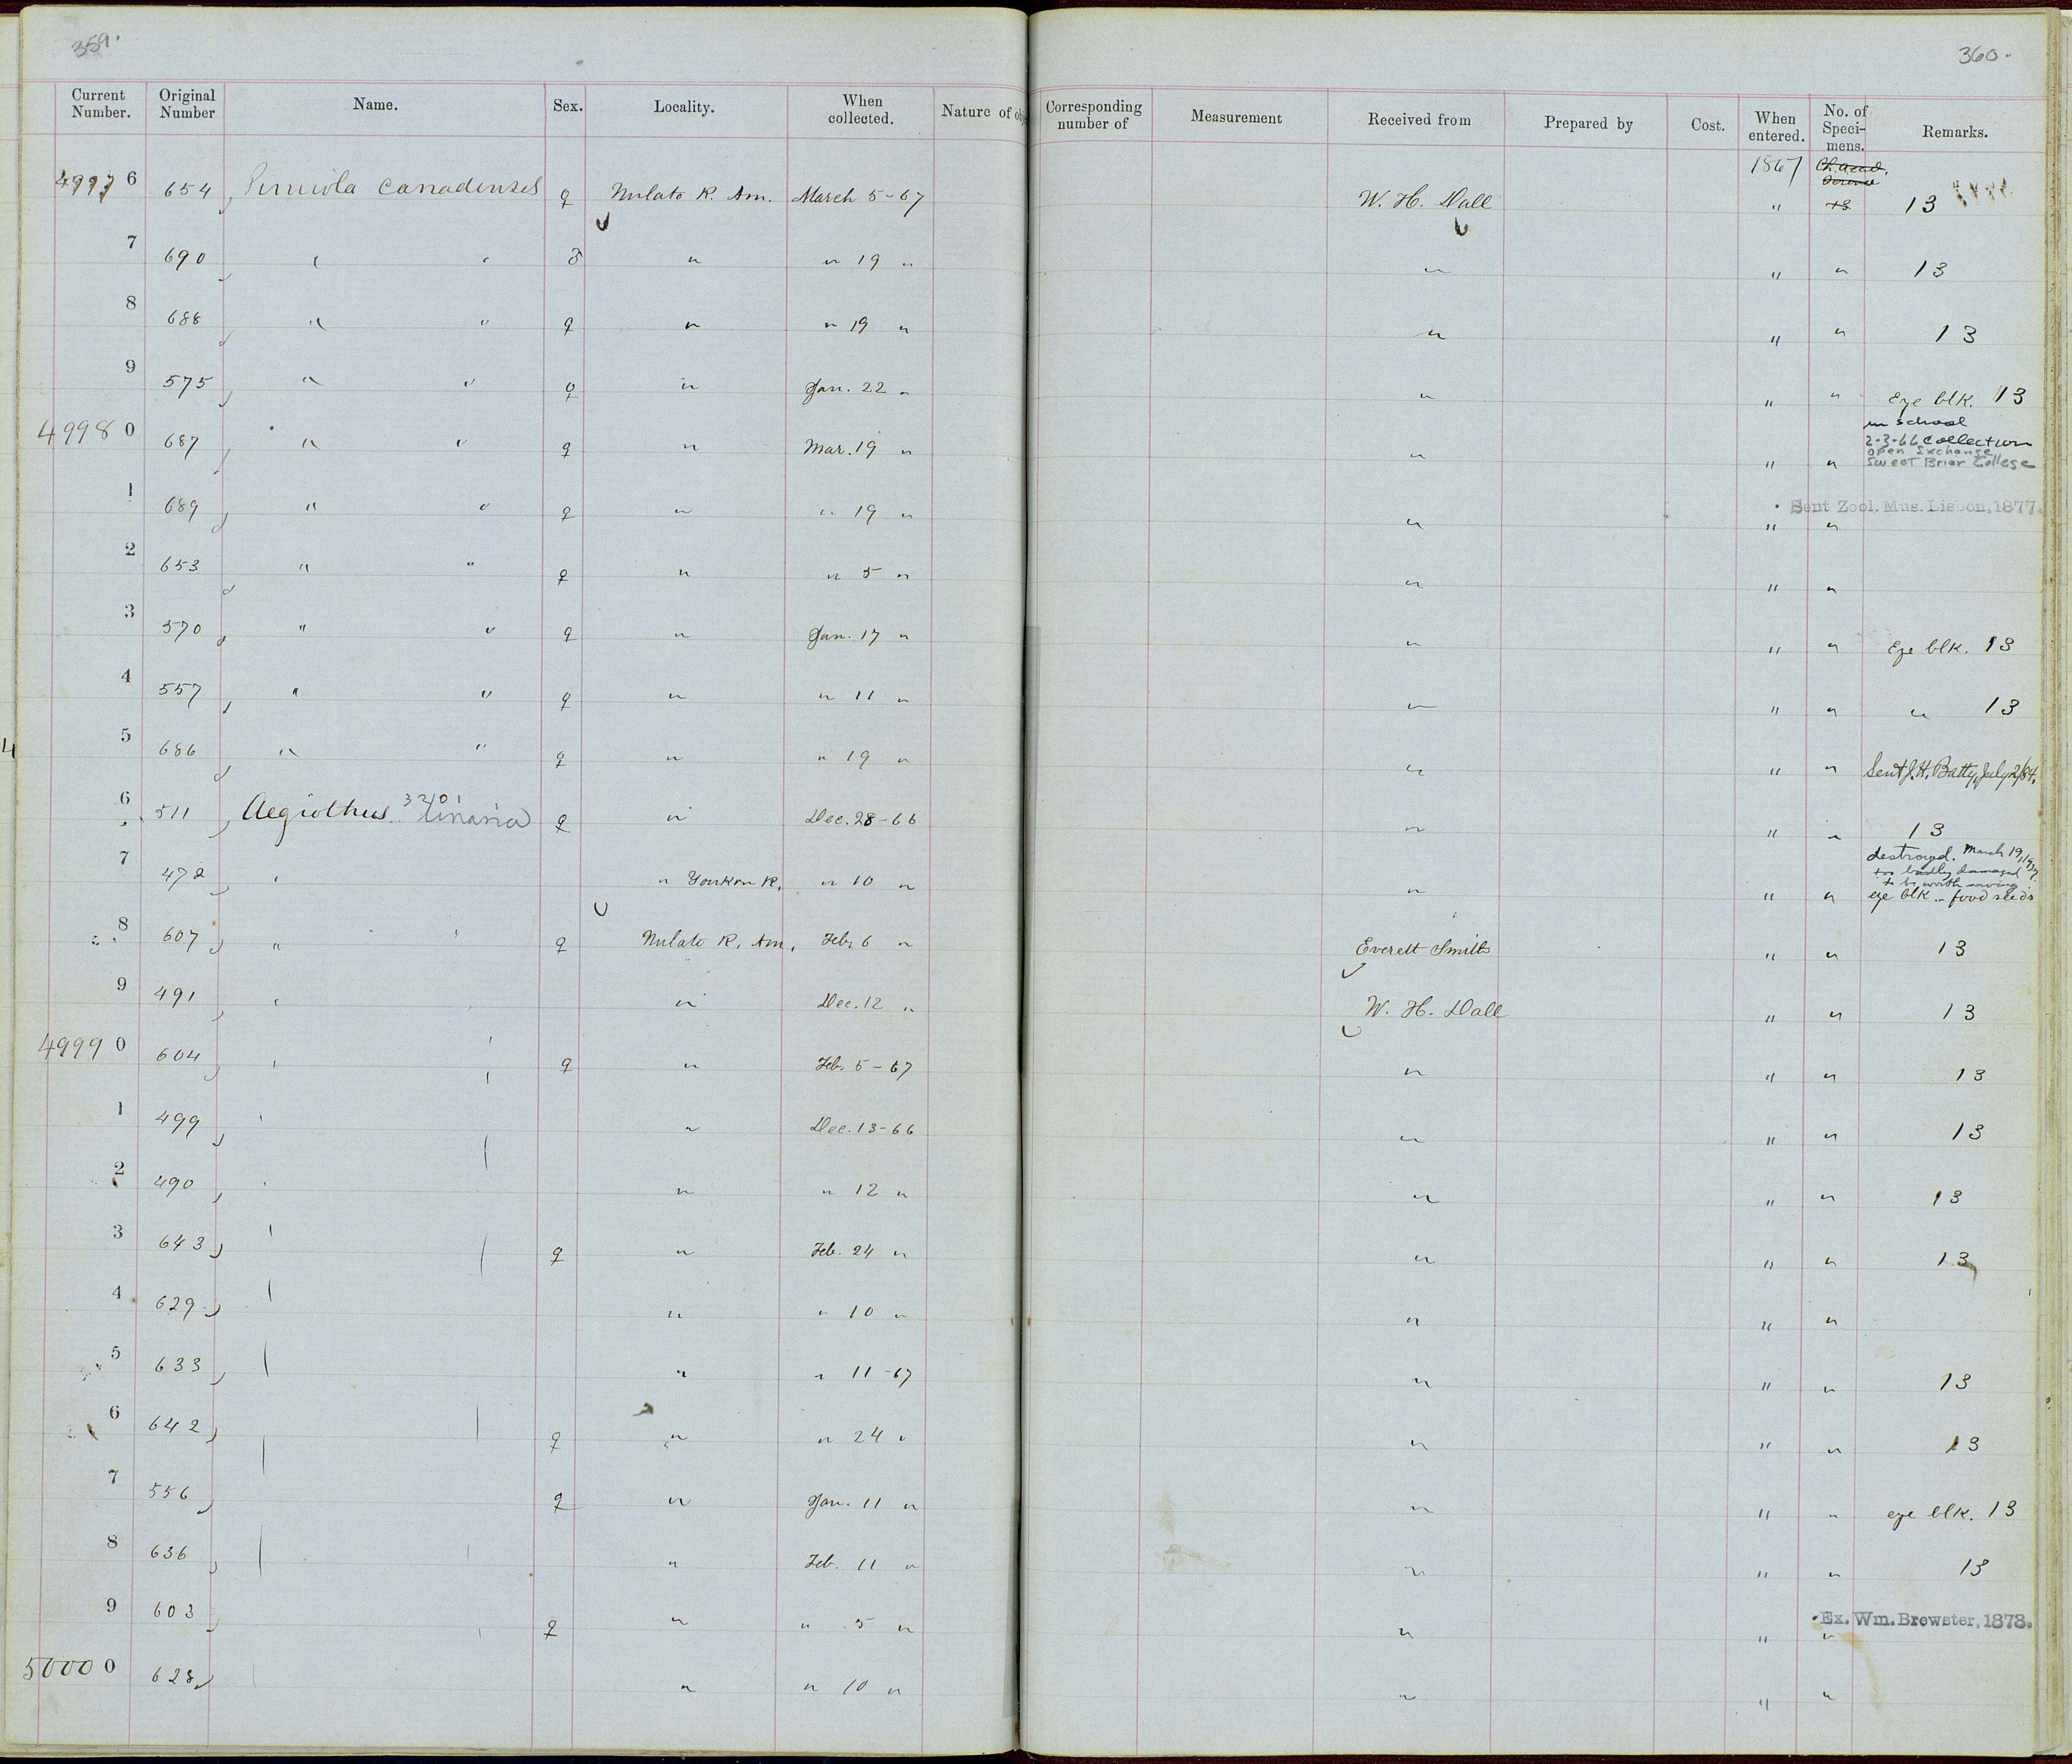 359.
360.
Current Number. Original Number Name. Sex. Locality. When collected. Nature of obje Corresponding number of Measurement Received from Prepared by Cost. When entered. No. of Speci-mens. Remarks.
1867
49976 654 Pinicola Canadensis ♀ Nulato R. Am. March 5-67 W. H. Dall " 13
7 690 " " ♂ " " 19 " " " " 13
8 688 " " ♀ " " 19 " " " " 13
9 575 " " ♀ " Jan. 22 " " " " Eye blk. 13
in School
2-3-66 Collection
open Exchange
Sweet Briar College
49980 687 " " ♀ " Mar. 19 " " " "
Sent Zool. Mus. Lisbon, 1877.
1 689 " " ♀ " " 19 " " " "
2 653 " " ♀ " " 5 " " " "
3 570 " " ♀ " Jan. 17 " " " " Eye blk. 13
4 557 " " ♀ " " 11 " " " " " 13
5 686 " " ♀ " " 19 " " " " Sent J. H. Batty, July 2/84.
3201
6 511 Aegiothus linaria ♀ " Dec. 28-66 " " " 13
destroyed. March 19,
too badly damaged
to be worth saving
7 472 " " Youkon R. " 10 " " " " eye blk " food seeds
8 607 " " ♀ Nulato R. Am. Feb. 6 " Everett Smith " " 13
9 491 " " Dec. 12 " W. H. Dall " " 13
49990 604 " ♀ " Feb. 5-67 " " " 13
1 499 " " Dec. 13-66 " " " 13
2 490 " " " 12 " " " " 13
3 643 ♀ " Feb. 24 " " " " 13
4 629 " " 10 " " " "
5 633 " " 11-67 " " " 13
6 642 ♀ " " 24 " " " " 13
7 556 ♀ " Jan. 11 " " " " eye blk. 13
8 636 " Feb. 11 " " " " 13
Ex. Wm. Brewster, 1878.
9 603 ♀ " " 5 " " " "
50000 628 " " 10 " " " "